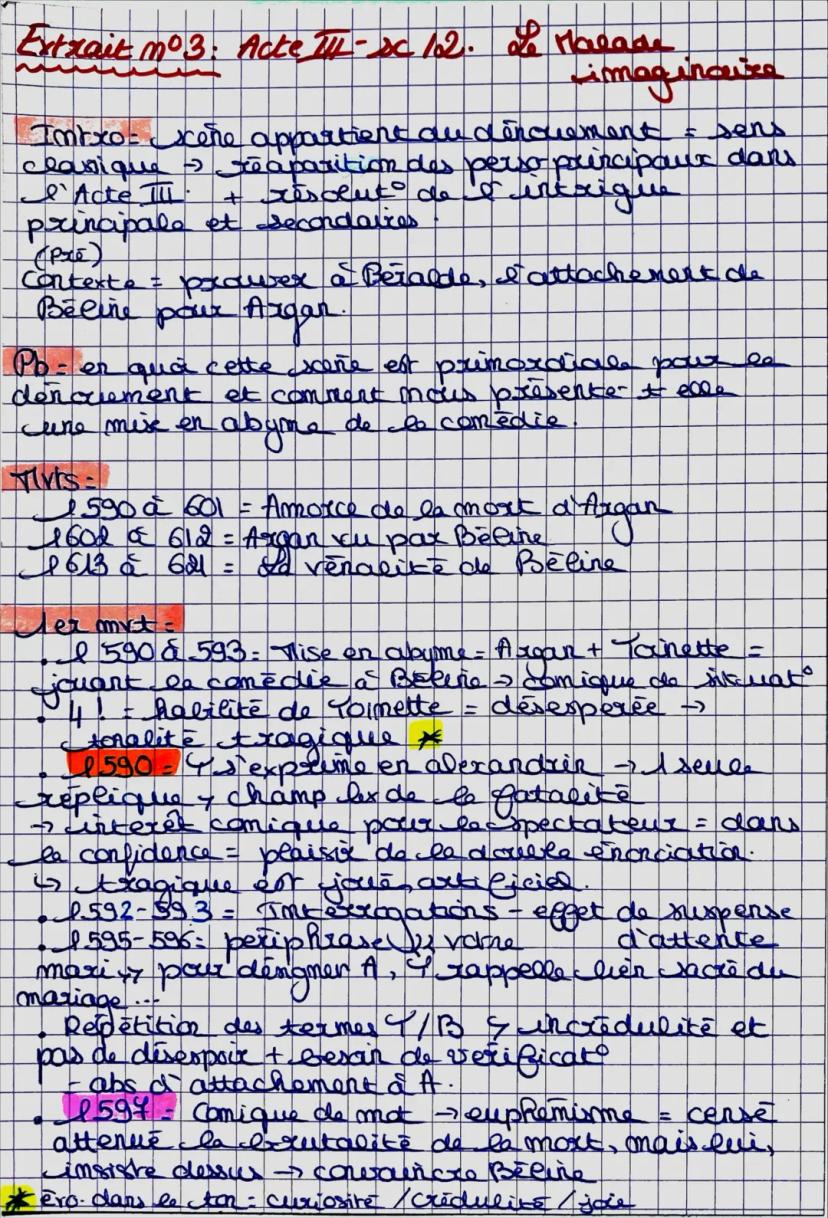 Extrait n°3: Acte III - sc 12. Le Malade
imaginaire
Intro = scène appartient au dénouement = sens
classique → réaparition des perso principaux dans
l'Acte III. + résolut° de l'intrigue
principale et secondaires.
(Pré)
Contexte = prouver à Béralde, l'attachement de
Béline pour Argan.
Pb = en quoi cette scène est primordiale pour le
dénouement et comment nous présente-t-elle
une mise en abyme de la comédie.
Mvts =
l 590 à 601 = Amorce de la mort d'Argan
l 602 à 612 = Argan vu par Béline
l 613 à 621 = La vénalité de Béline
1er mvt =
. l 590 à 593 = Mise en abyme = Argan + Toinette =
jouant la comédie à Béline → comique de situat°
. 4 ! = habilité de Toinette = désesperée →
tonalité tragique *
. l 590 = T s'exprime en alexandrin → 1 seule
réplique → champ lex de la fatalité
→ intérêt comique pour le spectateur = dans
la confidence = plaisir de la double énonciation.
↳ tragique est joué, artificiel.
. l.592-593 = Interrogations - effet de suspense
d'attente
. l.595-596 = périphrase "votre
mari" → pour désigner A, T rappelle lien sacré du
mariage...
. Répétition des termes T/B ↳ incrédulité et
pas de désespoir + besoin de vérificat°
- abs d'attachement à A.
. l 597 = Comique de mot → euphémisme = censé
attenué la brutalité de la mort, mais lui,
insiste dessus → convaincre Béline
* éro. dans le ton = curiosité / crédulité / joie